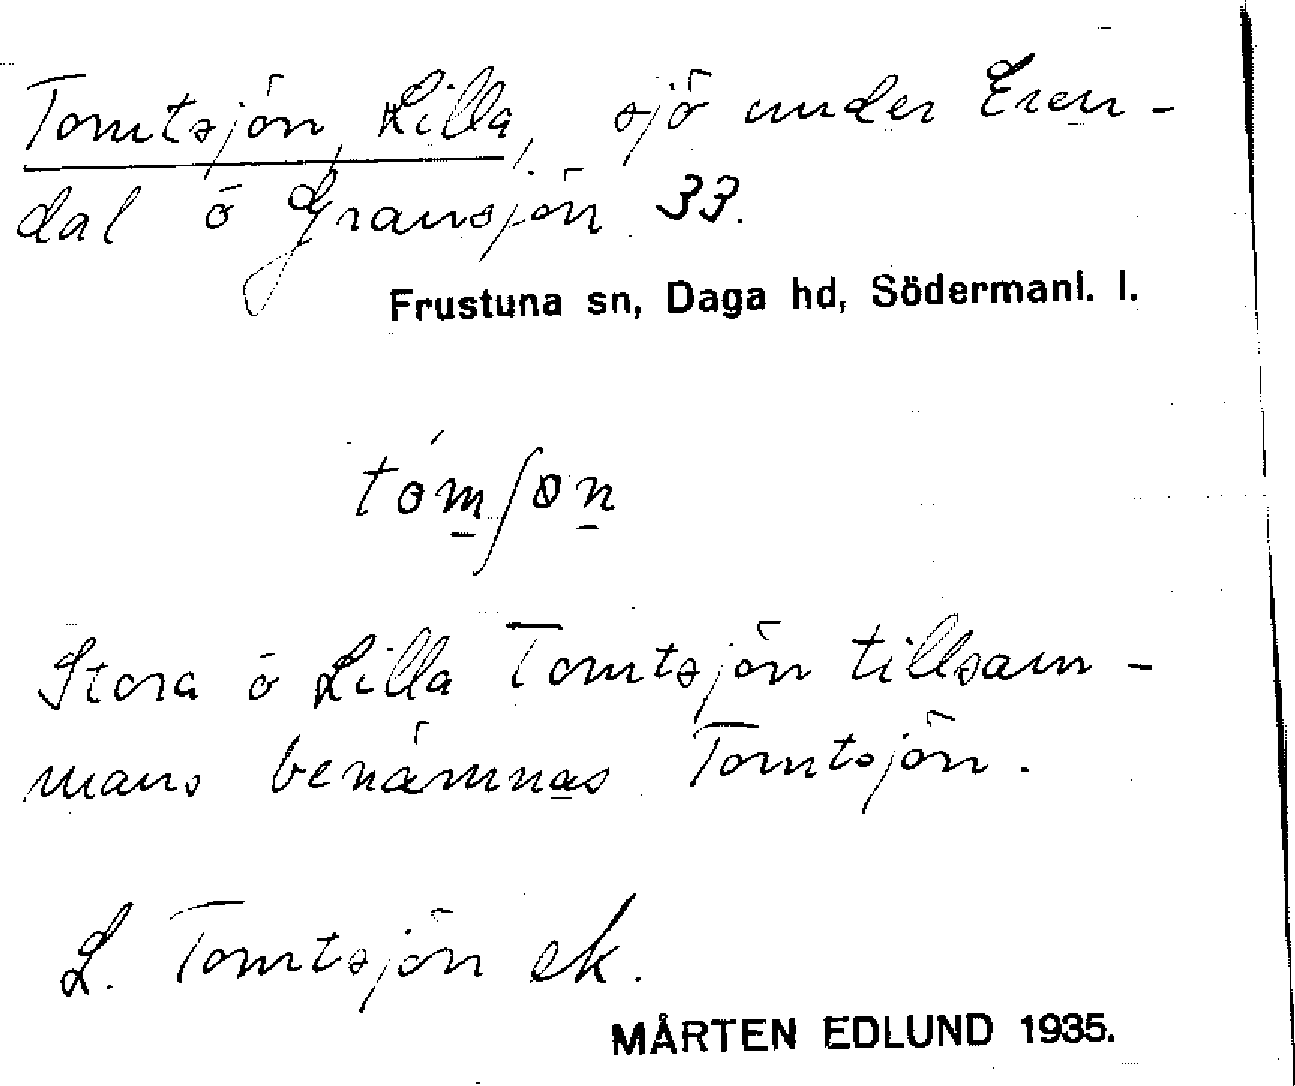 Tomtsjön, Lilla, sjö under Eren-
dal o Gransjön 33.
Frustuna sn, Daga hd, Södermanl. l.
tómʃøn
Stora o Lilla Tomtsjön tillsam-
mans benämnas Tomtsjön.
L. Tomtsjön ek.
MÅRTEN EDLUND 1935.